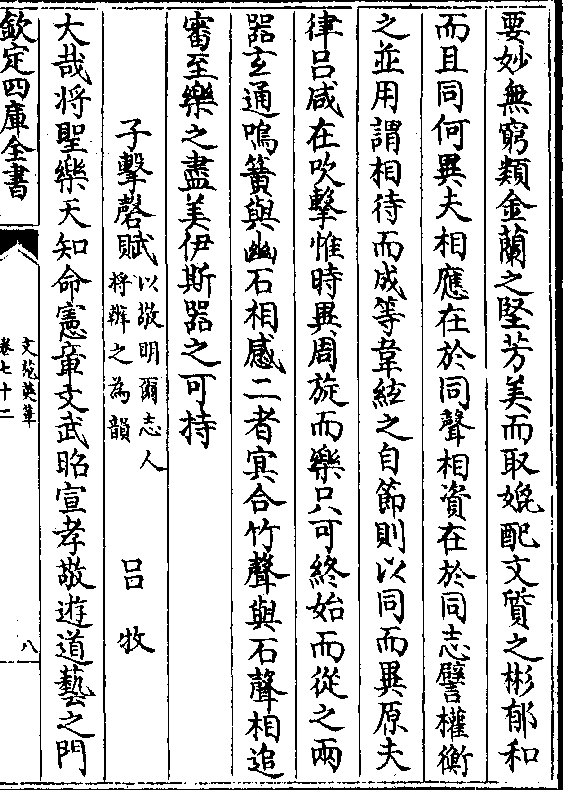 要妙無窮類金蘭之堅芳美而取媲配文質之彬郁和
而且同何異夫相應在於同聲相資在於同志譬權衡
之並用謂相待而成等韋絃之自節則以同而異原夫
律呂咸在吹擊惟時異周旋而樂只可終始而從之兩
器玄通鳴簧與幽石相感二者寅合竹聲與石聲相追
審至樂之盡美伊斯器之可持
子擊磬賦以敬明爾志人
将辦之為韻
呂牧
大哉将聖樂天知命憲章文武昭宣孝敬遊道藝之門
欽定四庫全書
文苑英華
卷七十二
八